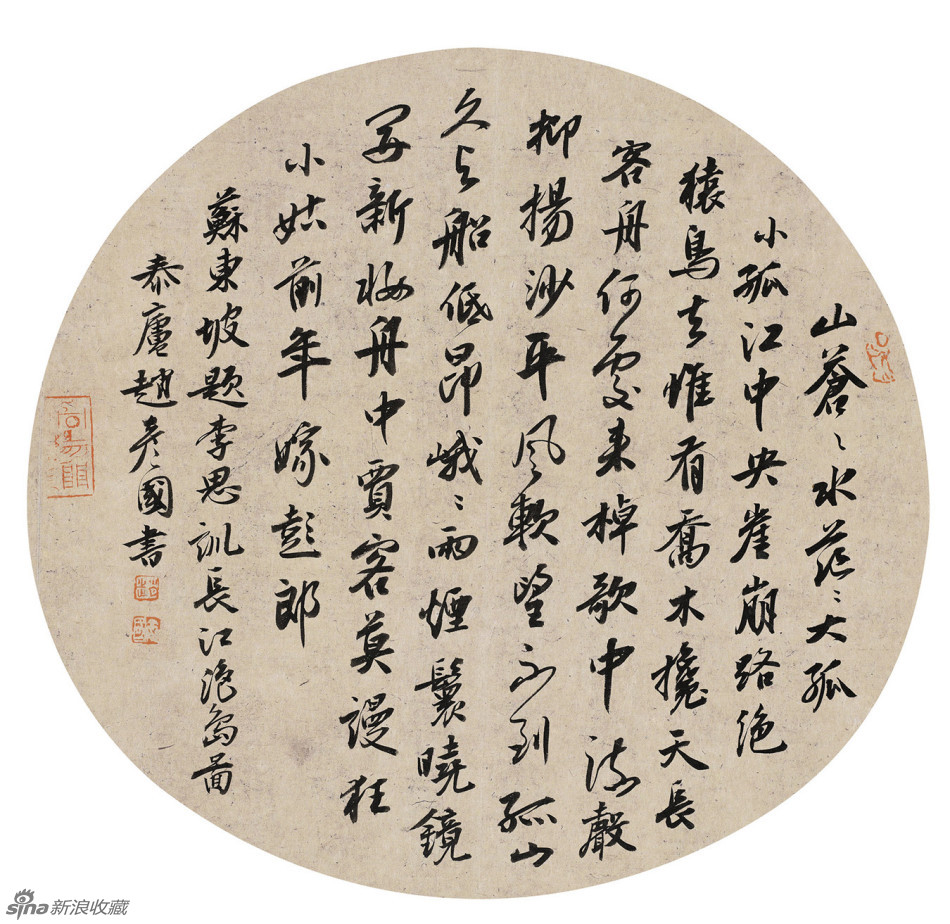 山蒼〻水茫〻大孤
小孤江中央崖崩路絶
猿鳥去惟有喬木攙天長
客舟何處来棹歌中流聲
抑揚沙平風軟望不到孤山
久与船低昂峨〻兩煙鬟曉鏡
開新妝舟中賈客莫謾狂
小姑前年嫁彭郎
蘇東坡題李思訓長江絶島圖
泰廬趙彦國書
sina新浪收藏